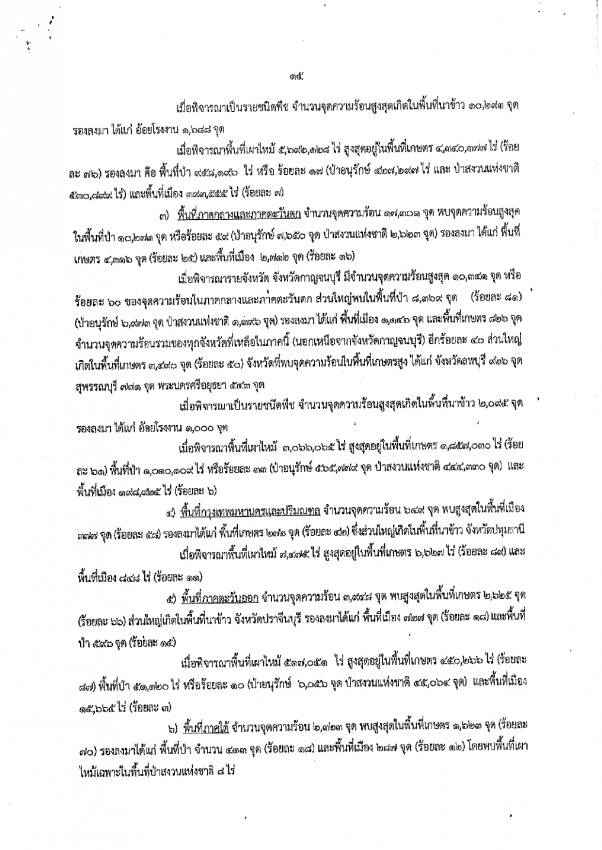 ๑๕
เมื่อพิจารณาเป็นรายชนิดพืช จำนวนจุดความร้อนสูงสุดเกิดในพื้นที่นาข้าว ๑๐,๒๙๓ จุด
รองลงมา ได้แก่ อ้อยโรงงาน ๑,๖๘๘ จุด
เมื่อพิจารณาพื้นที่เผาไหม้ ๕,๖๙๒,๑๒๘ ไร่ สูงสุดอยู่ในพื้นที่เกษตร ๔,๓๔๐,๓๗๗ ไร่ (ร้อย
ละ ๗๖) รองลงมา คือ พื้นที่ป่า ๙๕๘,๑๙๖ ไร่ หรือ ร้อยละ ๑๗ (ป่าอนุรักษ์ ๔๒๗,๒๙๗ ไร่ และ ป่าสงวนแห่งชาติ
๕๓๐,๘๙๙ ไร่) และพื้นที่เมือง ๓๙๓,๕๕๕ ไร่ (ร้อยละ ๗)
๓) พื้นที่ภาคกลางและภาคตะวันตก จำนวนจุดความร้อน ๑๗,๓๐๑ จุด พบจุดความร้อนสูงสุด
ในพื้นที่ป่า ๑๐,๒๗๓ จุด หรือร้อยละ ๕๙ (ป่าอนุรักษ์ ๗,๖๕๐ จุด ป่าสงวนแห่งชาติ ๒,๖๒๓ จุด) รองลงมา ได้แก่ พื้นที่
เกษตร ๔,๓๑๖ จุด (ร้อยละ ๒๕) และพื้นที่เมือง ๒,๗๑๒ จุด (ร้อยละ ๑๖)
เมื่อพิจารณารายจังหวัด จังหวัดกาญจนบุรี มีจำนวนจุดความร้อนสูงสุด ๑๐,๓๔๑ จุด หรือ
ร้อยละ ๖๐ ของจุดความร้อนในภาคกลางและภาคตะวันตก ส่วนใหญ่พบในพื้นที่ป่า ๘,๓๖๙ จุด (ร้อยละ ๘๑)
(ป่าอนุรักษ์ ๖,๙๗๓ จุด ป่าสงวนแห่งชาติ ๑,๓๙๖ จุด) รองลงมา ได้แก่ พื้นที่เมือง ๑,๑๔๖ จุด และพื้นที่เกษตร ๘๒๖ จุด
จำนวนจุดความร้อนรวมของทุกจังหวัดที่เหลือในภาคนี้ (นอกเหนือจากจังหวัดกาญจนบุรี) อีกร้อยละ ๔๐ ส่วนใหญ่
เกิดในพื้นที่เกษตร ๓,๔๙๐ จุด (ร้อยละ ๕๐) จังหวัดที่พบจุดความร้อนในพื้นที่เกษตรสูง ได้แก่ จังหวัดลพบุรี ๙๓๖ จุด
สุพรรณบุรี ๗๘๑ จุด พระนครศรีอยุธยา ๕๔๓ จุด
เมื่อพิจารณาเป็นรายชนิดพืช จำนวนจุดความร้อนสูงสุดเกิดในพื้นที่นาข้าว ๒,๐๙๕ จุด
รองลงมา ได้แก่ อ้อยโรงงาน ๑,๐๐๐ จุด
เมื่อพิจารณาพื้นที่เผาไหม้ ๓,๐๖๖,๐๖๕ ไร่ สูงสุดอยู่ในพื้นที่เกษตร ๑,๘๕๗,๐๓๐ ไร่ (ร้อย
ละ ๖๑) พื้นที่ป่า ๑,๐๑๐,๑๐๙ ไร่ หรือร้อยละ ๓๓ (ป่าอนุรักษ์ ๕๖๕,๗๗๙ จุด ป่าสงวนแห่งชาติ ๔๔๔,๓๓๐ จุด) และ
พื้นที่เมือง ๑๙๘,๙๒๕ ไร่ (ร้อยละ ๖)
๔) พื้นที่กรุงเทพมหานครและปริมณฑล จำนวนจุดความร้อน ๖๔๙ จุด พบสูงสุดในพื้นที่เมือง
๓๗๗ จุด (ร้อยละ ๕๘) รองลงมาได้แก่ พื้นที่เกษตร ๒๗๑ จุด (ร้อยละ ๔๒) ซึ่งส่วนใหญ่เกิดในพื้นที่นาข้าว จังหวัดปทุมธานี
เมื่อพิจารณาพื้นที่เผาไหม้ ๗,๔๗๕ ไร่ สูงสุดอยู่ในพื้นที่เกษตร ๖,๖๒๗ ไร่ (ร้อยละ ๘๙) และ
พื้นที่เมือง ๘๔๘ ไร่ (ร้อยละ ๑๑)
๕) พื้นที่ภาคตะวันออก จำนวนจุดความร้อน ๓,๙๔๘ จุด พบสูงสุดในพื้นที่เกษตร ๒,๖๒๕ จุด
(ร้อยละ ๖๖) ส่วนใหญ่เกิดในพื้นที่นาข้าว จังหวัดปราจีนบุรี รองลงมาได้แก่ พื้นที่เมือง ๗๒๗ จุด (ร้อยละ ๑๘) และพื้นที่
ป่า ๕๙๖ จุด (ร้อยละ ๑๕)
เมื่อพิจารณาพื้นที่เผาไหม้ ๕๑๗,๐๕๑ ไร่ สูงสุดอยู่ในพื้นที่เกษตร ๔๕๐,๒๖๖ ไร่ (ร้อยละ
๘๗) พื้นที่ป่า ๕๑,๑๒๐ ไร่ หรือร้อยละ ๑๐ (ป่าอนุรักษ์ ๖,๐๕๖ จุด ป่าสงวนแห่งชาติ ๔๕,๐๖๔ จุด) และพื้นที่เมือง
๑๕,๖๖๕ ไร่ (ร้อยละ ๓)
๖) พื้นที่ภาคใต้ จำนวนจุดความร้อน ๒,๓๒๓ จุด พบสูงสุดในพื้นที่เกษตร ๑,๖๒๓ จุด (ร้อยละ
๗๐) รองลงมาได้แก่ พื้นที่ป่า จำนวน ๔๑๓ จุด (ร้อยละ ๑๘) และพื้นที่เมือง ๒๘๗ จุด (ร้อยละ ๑๒) โดยพบพื้นที่เผา
ไหม้เฉพาะในพื้นที่ป่าสงวนแห่งชาติ ๘ ไร่